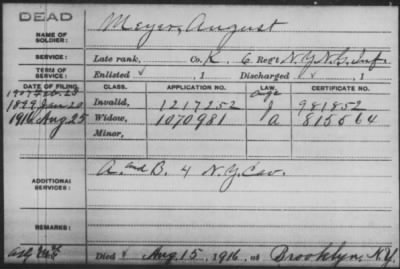 DEAD
NAME OF SOLDIER: Meyer, August
SERVICE: Late rank, Co. K, 6 Reg't N.Y.N.G. Inf.
TERM OF SERVICE: Enlisted √, 1 Discharged √, 1
DATE OF FILING. CLASS. APPLICATION NO. LAW. CERTIFICATE NO.
age
1899 Jan 20 Invalid, 1217252 J 981852
1916 Aug 25 Widow, 1070981 A 815564
Minor,
ADDITIONAL SERVICES: A. and B. 4 N.Y. Cav.
REMARKS:
Died √ Aug. 15, 1916, at Brooklyn, N.Y.